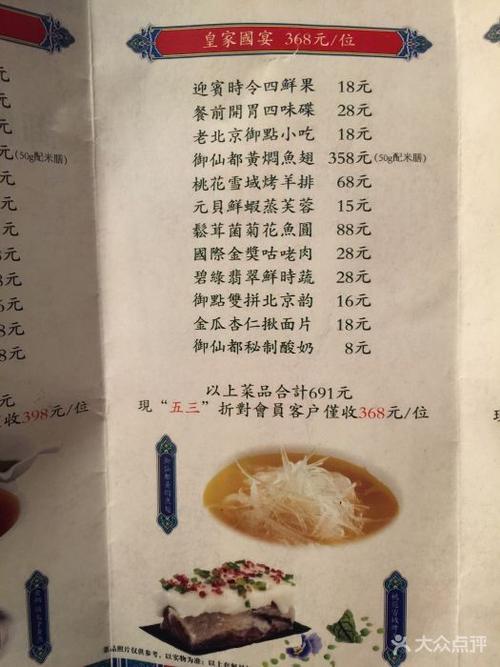 皇家國宴 368元/位
迎賓時令四鮮果 18元
餐前開胃四味碟 28元
老北京御點小吃 18元
御仙都黃燜魚翅 358元(50g配米膳)
桃花雪域烤羊排 68元
元貝鮮蝦蒸芙蓉 15元
鬆茸菌菊花魚圓 88元
國際金獎咕咾肉 28元
碧綠翡翠鮮時蔬 28元
御點雙拼北京韵 16元
金瓜杏仁揪面片 18元
御仙都秘制酸奶 8元
以上菜品合計691元
現“五三”折對會員客户僅收368元/位
元
元
元
元(50g配米膳)
元
元
元
元
元
元
元
8元
元
收398元/位
現
菜品照片僅供參考，以實物為準
大众点评